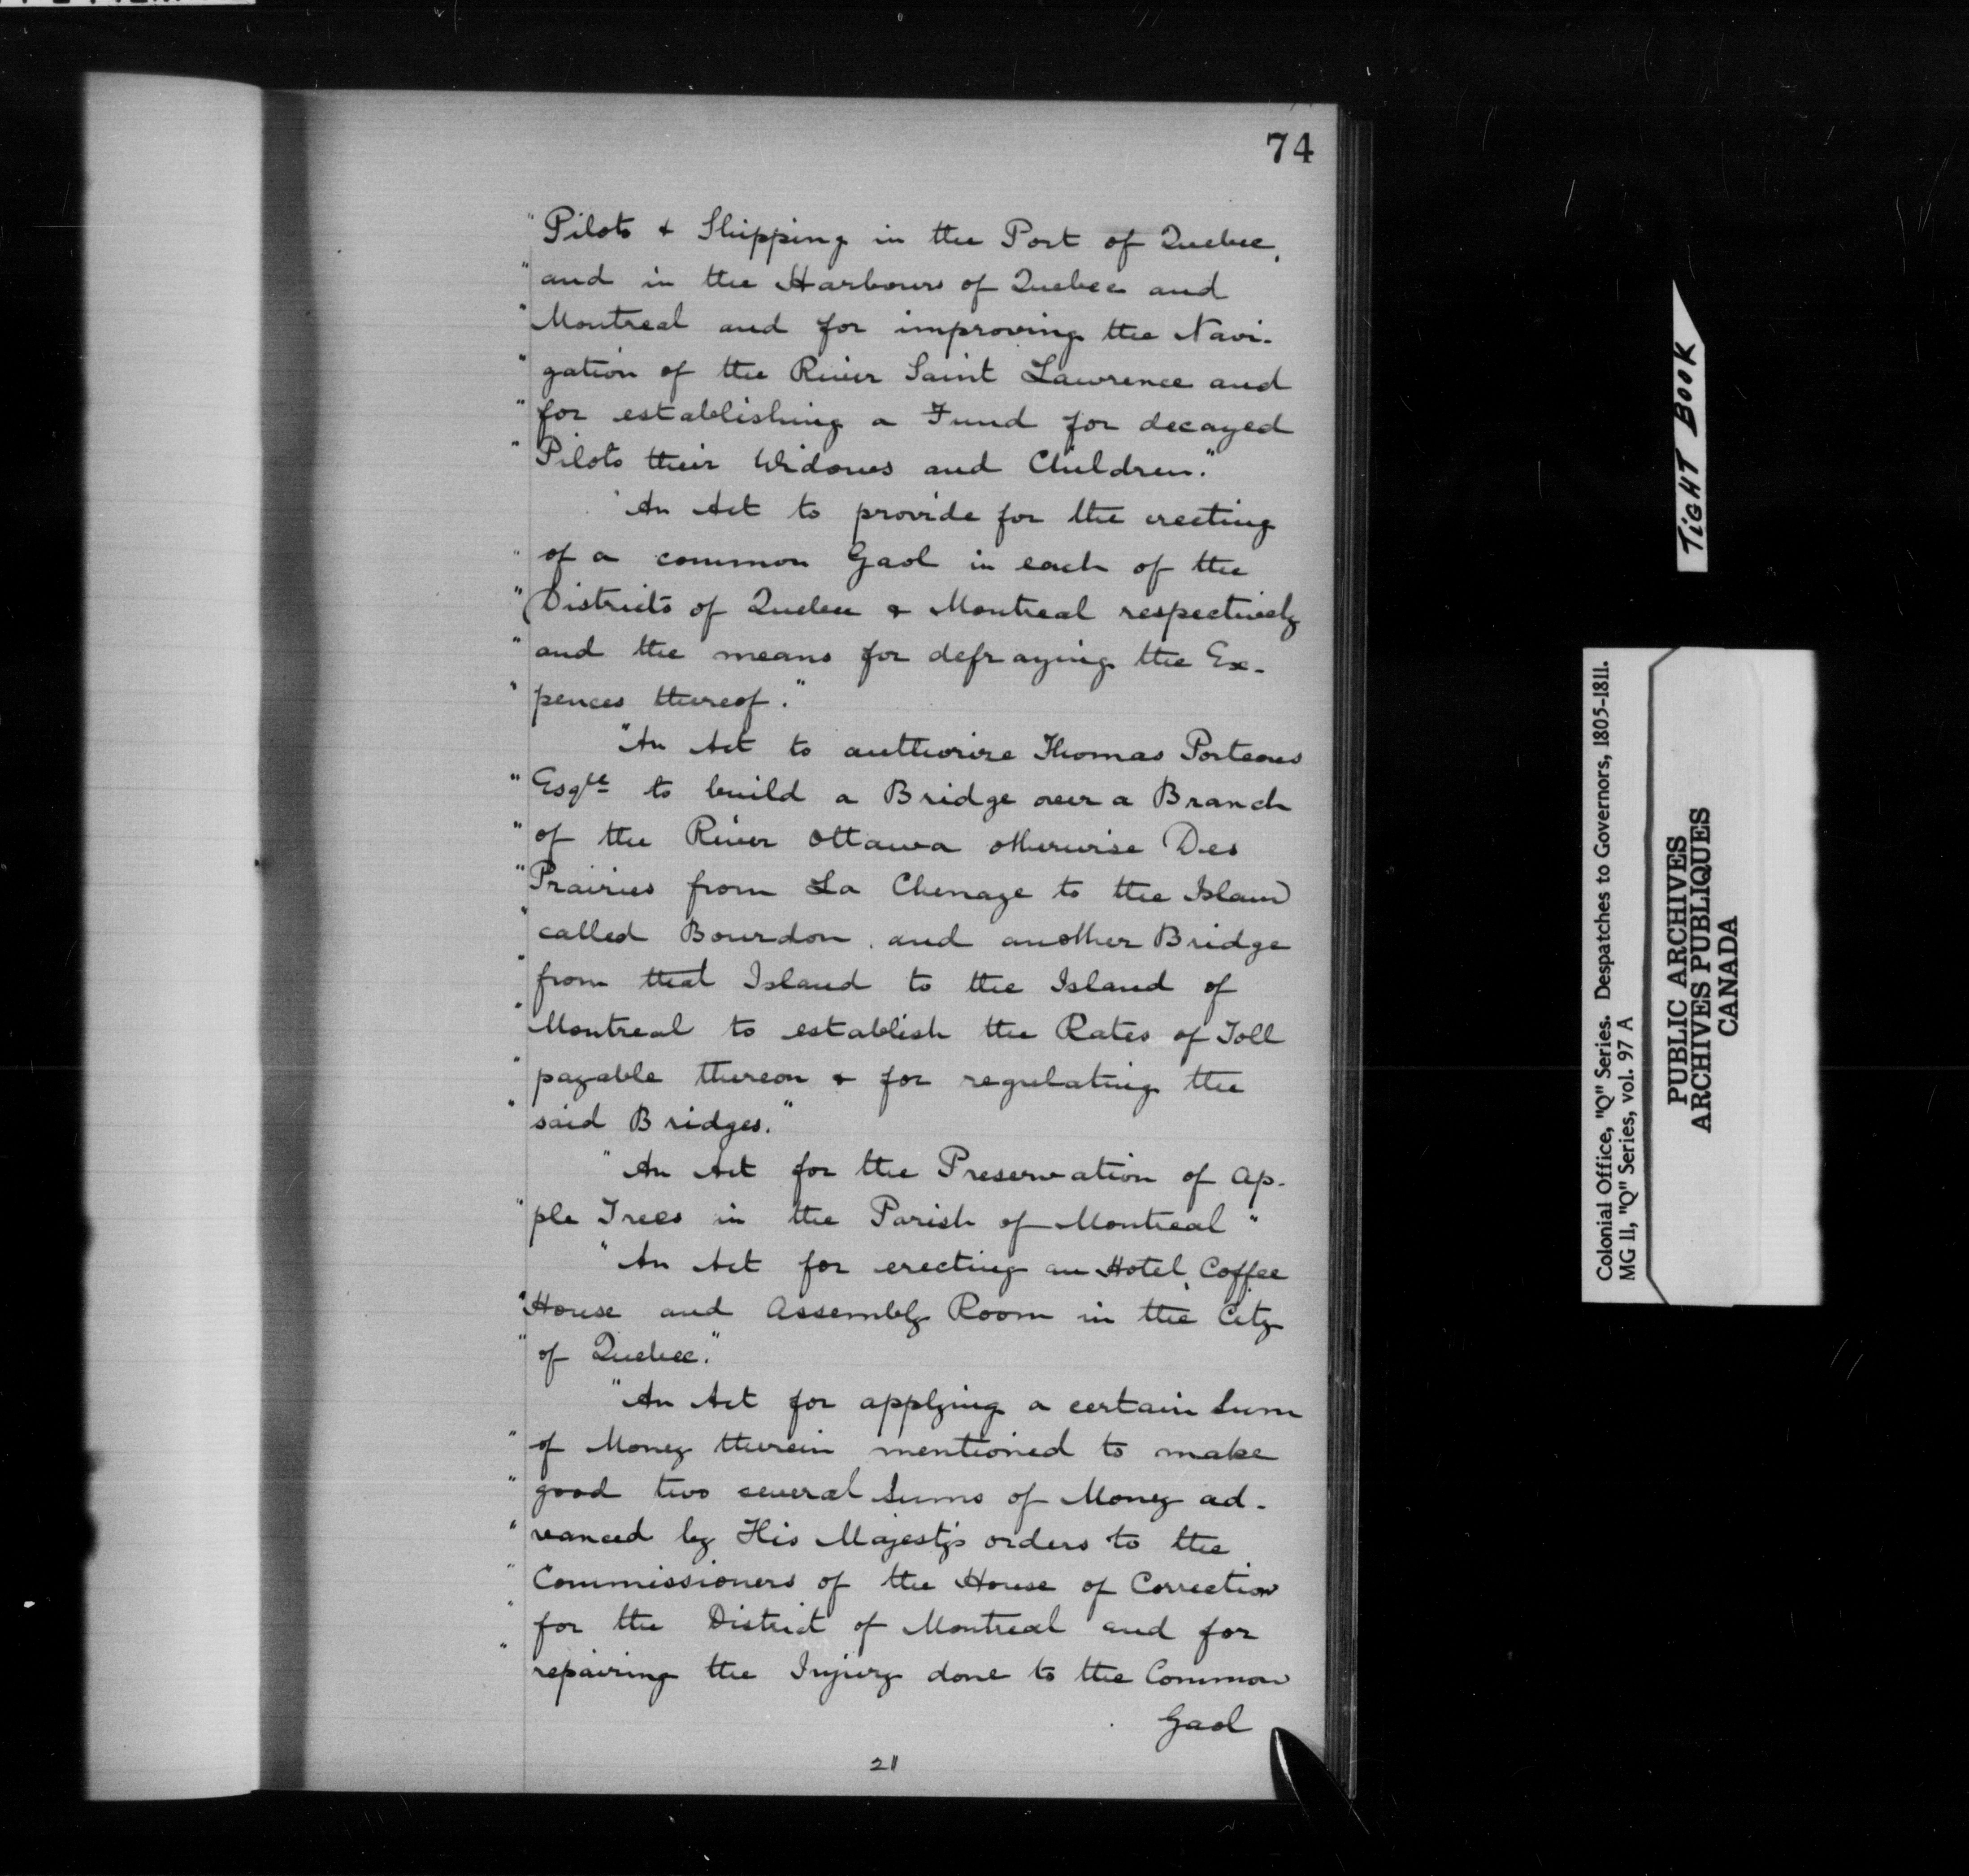 74
" Pilots & Shipping in the Port of Quebec,
" and in the Harbours of Quebec and
" Montreal and for improving the Navi-
" gation of the River Saint Lawrence and
" for establishing a Fund for decayed
" Pilots their Widows and Children."
" An Act to provide for the erecting
" of a common Gaol in each of the
" Districts of Quebec & Montreal respectively
" and the means for defraying the Ex-
" pences thereof."
"An Act to authorize Thomas Porteous
" Esqre to build a Bridge over a Branch
" of the River Ottawa otherwise Des
" Prairies from La Chenaye to the Island
" called Bourdon, and another Bridge
" from that Island to the Island of
" Montreal to establish the Rates of Toll
" payable thereon & for regulating the
" said Bridges."
" An Act for the Preservation of Ap-
" ple Trees in the Parish of Montreal"
" An Act for erecting an Hotel, Coffee
" House and Assembly Room in the City
" of Quebec."
"An Act for applying a certain Sum
" of Money therein mentioned to make
" good two several Sums of Money ad-
" vanced by His Majesty's orders to the
" Commissioners of the House of Correction
" for the District of Montreal and for
" repairing the Injury done to the Common
Gaol
21
TIGHT BOOK
Colonial Office, "Q" Series. Despatches to Governors, 1805-1811.
MG 11, "Q" Series, vol. 97 A
PUBLIC ARCHIVES
ARCHIVES PUBLIQUES
CANADA